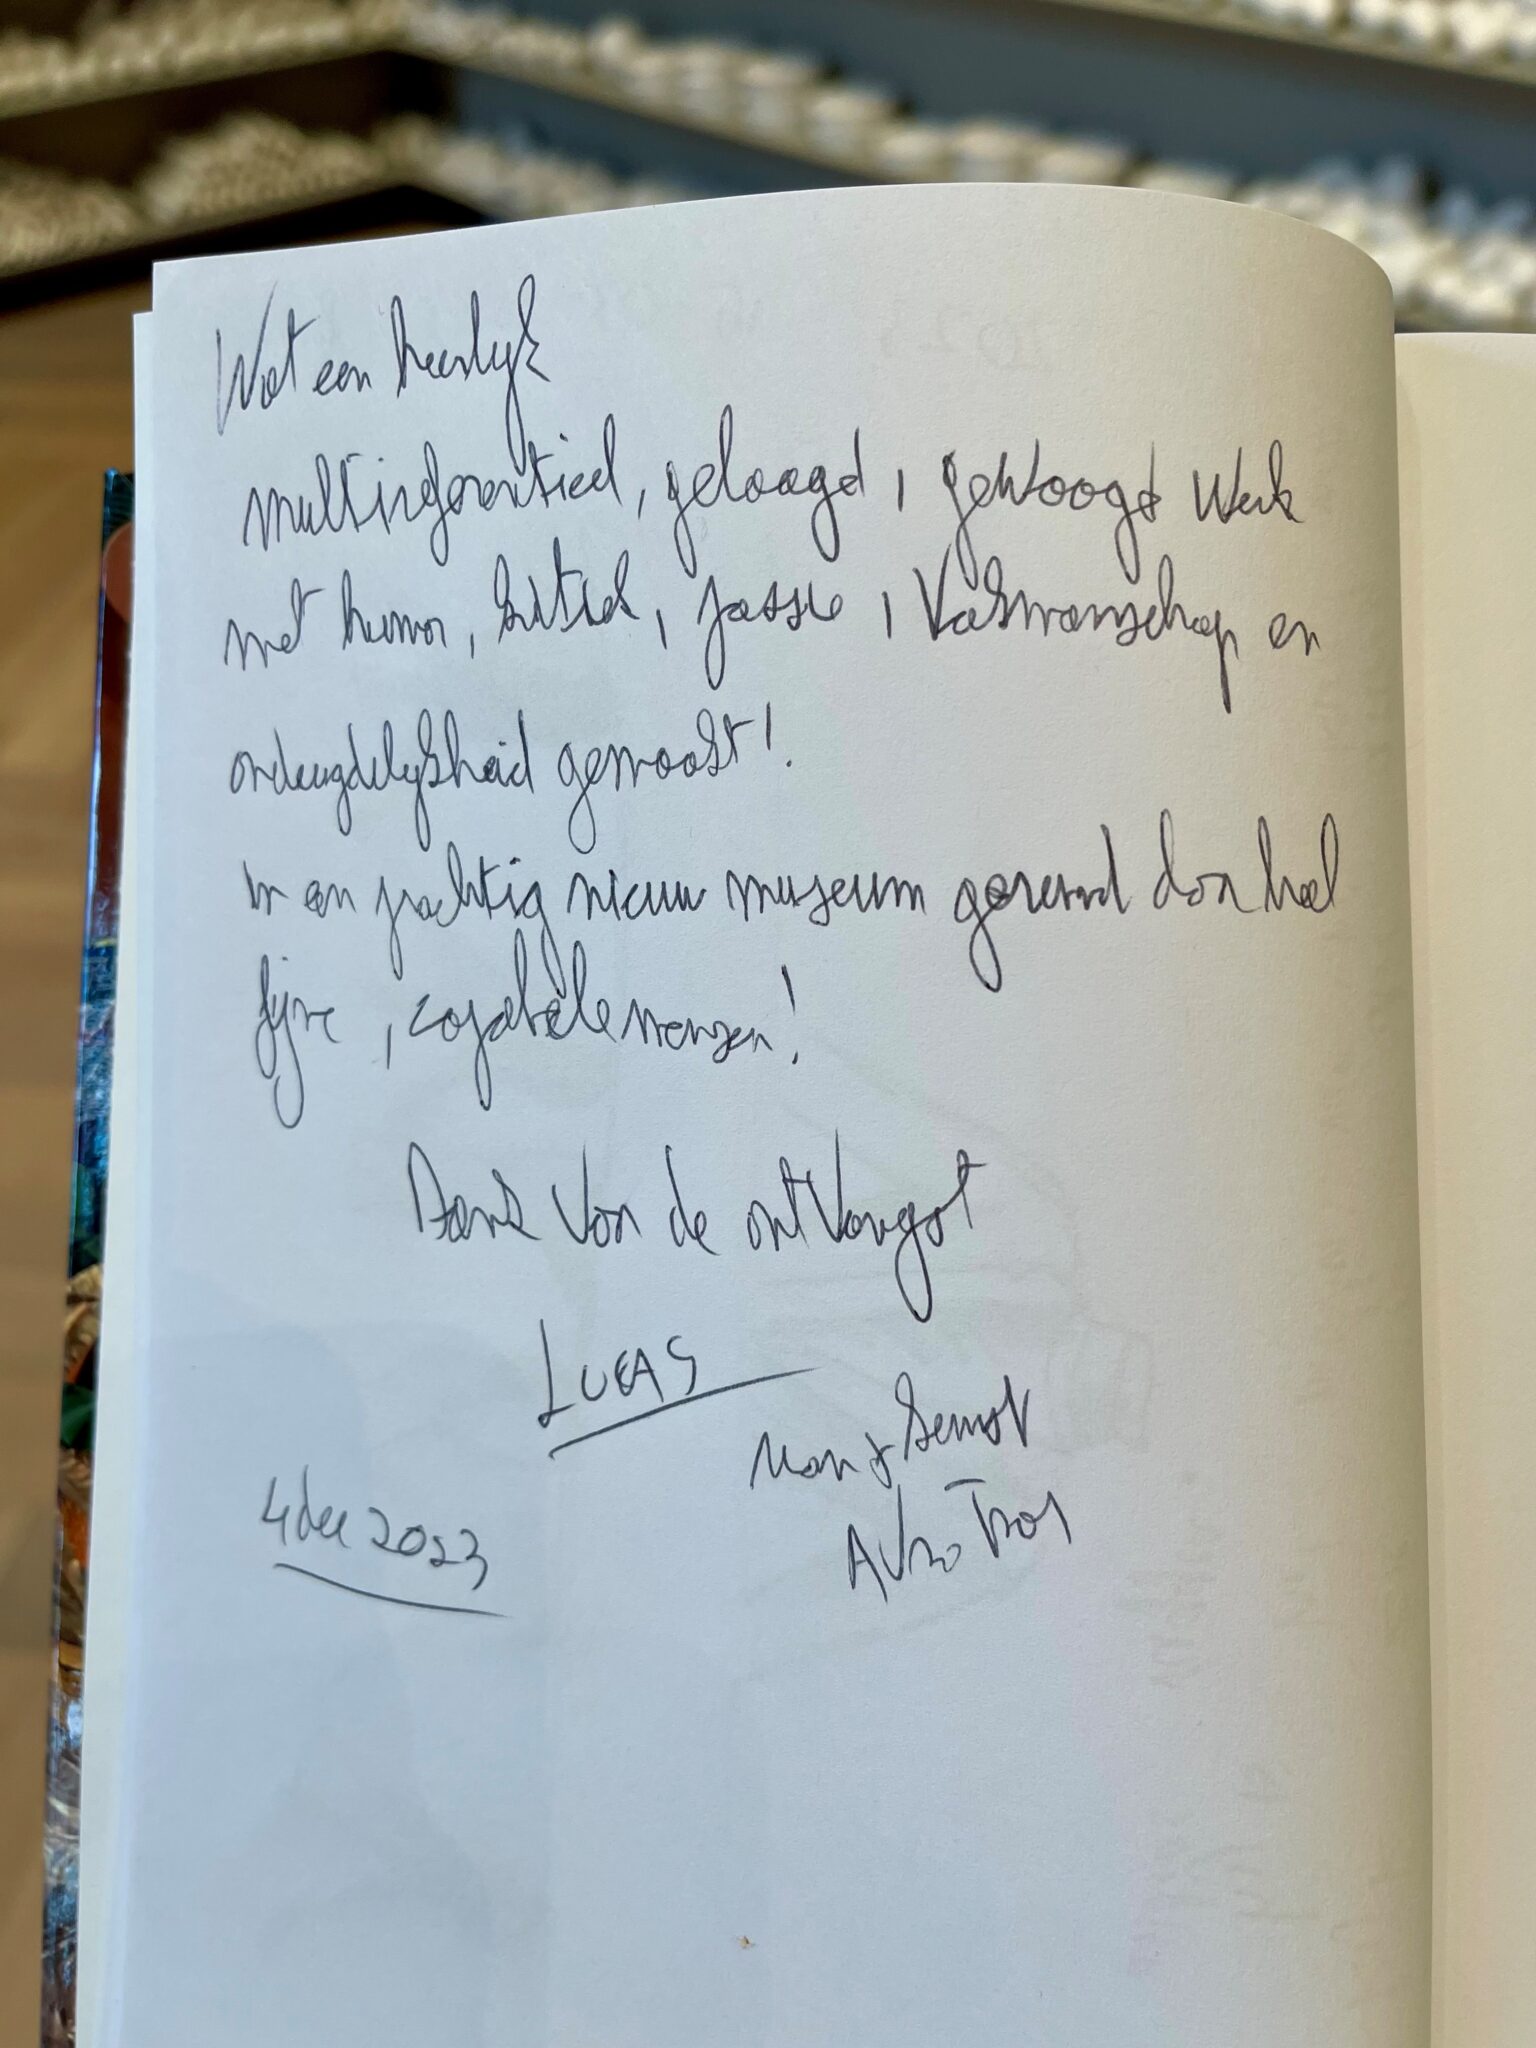 Wat een heerlijk
multireferentieel, gelaagd, gewaagd werk
met humor, kritiek, passie, vakmanschap en
ondeugdelijkheid gemaakt!
In een prachtig nieuw museum gerund door heel
fijne, capabele mensen!
Dank voor de ontvangst
LUCAS
4 dec 2023
Kunst
AVROTROS